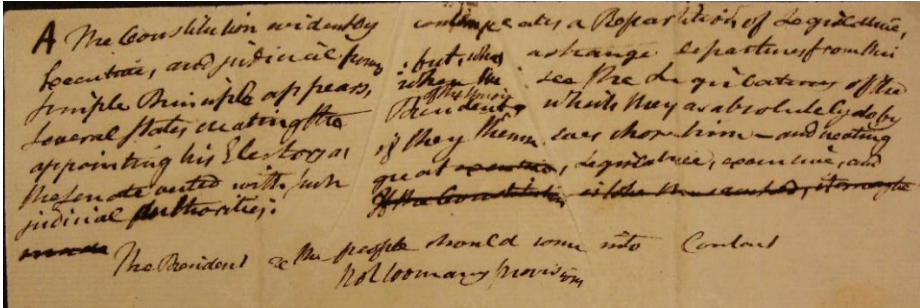 A The Constitution evidently contemplates a Repartition of Legislative,
Executive, and judicial powers; but, what a strange departure from this
simple Principle appears, when the see the Legislatures of the
several States creating the President of the Union which they as absolutely do by
appointing his Electors as if they themselves chose him – and creating
the Senate vested with such great executive, Legislative, executive, and
judicial Authorities: If the Constitution is to be it may be
made
The President & the people should come into Contact
Not too many provisions